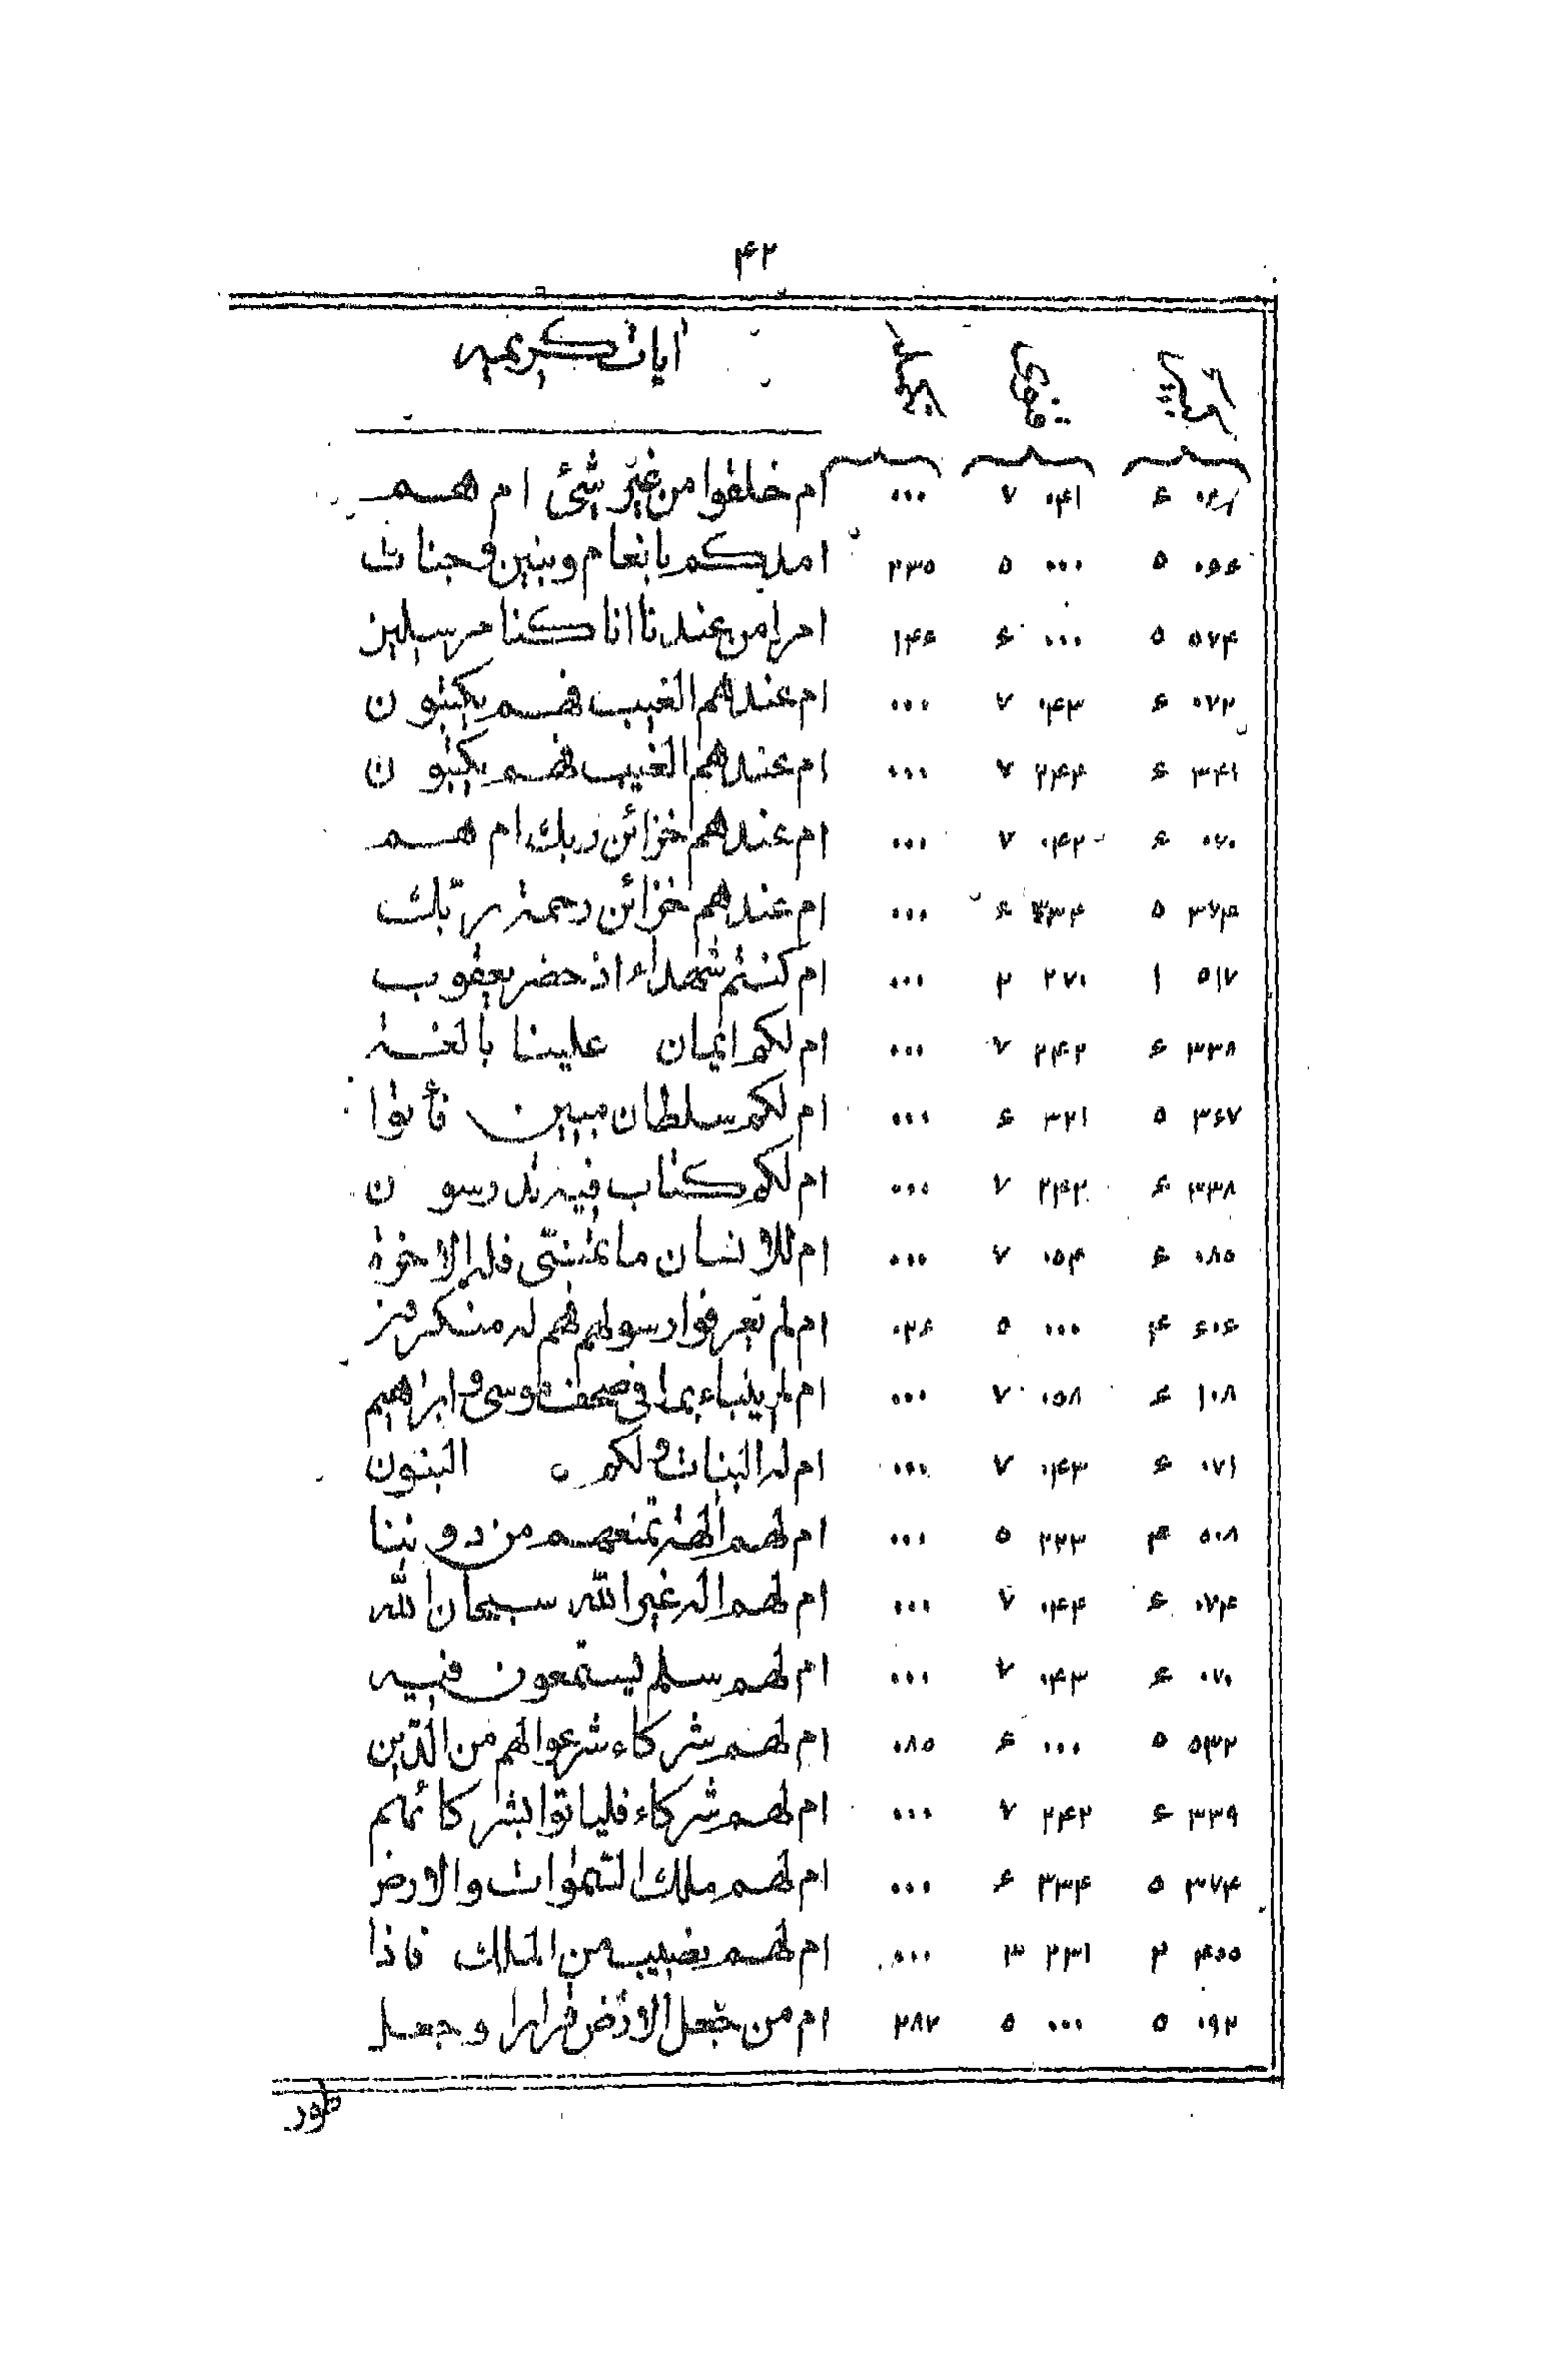 ۴۲
آیات کریمه
۰۶۹ ۶ ۰۴۱ ۷ ۰۰۰ ام خلقوا من غیر شیئ ام هم
۰۶۶ ۵ ۰۰۰ ۵ ۲۳۵ امدکم بانعام وبنین وجنات
۵۷۴ ۵ ۰۰۰ ۶ ۱۴۶ امرا من عندنا انا کنا مرسلین
۰۷۲ ۶ ۰۴۳ ۷ ۰۰۰ ام عندهم الغیب فهم یکتبون
۳۴۱ ۶ ۲۴۴ ۷ ۰۰۰ ام عندهم الغیب فهم یکتبون
۰۷۰ ۶ ۰۴۲ ۷ ۰۰۰ ام عندهم خزائن ربك ام هم
۳۷۴ ۵ ۳۳۴ ۶ ۰۰۰ ام عندهم خزائن رحمة ربّك
۵۱۷ ۱ ۲۷۰ ۲ ۰۰۰ ام کنتم شهداء اذ حضر یعقوب
۳۳۸ ۶ ۲۴۲ ۷ ۰۰۰ ام لکم ایمان علینا بالغة
۳۶۷ ۵ ۳۲۱ ۶ ۰۰۰ ام لکم سلطان مبین فأتوا
۳۳۸ ۶ ۲۴۲ ۷ ۰۰۰ ام لکم کتاب فیه تدرسون
۰۸۵ ۶ ۰۵۴ ۷ ۰۰۰ ام للانسان ما تمنّی فلله الاخرة
۶۰۶ ۴ ۰۰۰ ۵ ۰۲۶ ام لم یعرفوا رسولهم فهم له منکرون
۱۰۸ ۶ ۰۵۸ ۷ ۰۰۰ ام لم ینباء بما فی صحف موسی و ابراهیم
۰۷۱ ۶ ۰۴۳ ۷ ۰۰۰ ام له البنات ولکم البنون
۵۰۸ ۴ ۲۲۳ ۵ ۰۰۰ ام لهم الهة تمنعهم من دوننا
۰۷۴ ۶ ۰۴۴ ۷ ۰۰۰ ام لهم اله غیر الله سبحان الله
۰۷۰ ۶ ۰۴۳ ۷ ۰۰۰ ام لهم سلم یستمعون فیه
۵۳۲ ۵ ۰۰۰ ۶ ۰۸۵ ام لهم شرکاء شرعوا لهم من الدّین
۳۳۹ ۶ ۲۴۲ ۷ ۰۰۰ ام لهم شرکاء فلیاتوا بشرکائهم
۳۷۴ ۵ ۳۳۴ ۶ ۰۰۰ ام لهم ملك السّموات والارض
۴۰۰ ۲ ۲۳۱ ۳ ۰۰۰ ام لهم نصیب من الملك فاذا
۰۹۲ ۵ ۰۰۰ ۵ ۲۸۷ ام من جعل الارض قرارا و جعل
طور